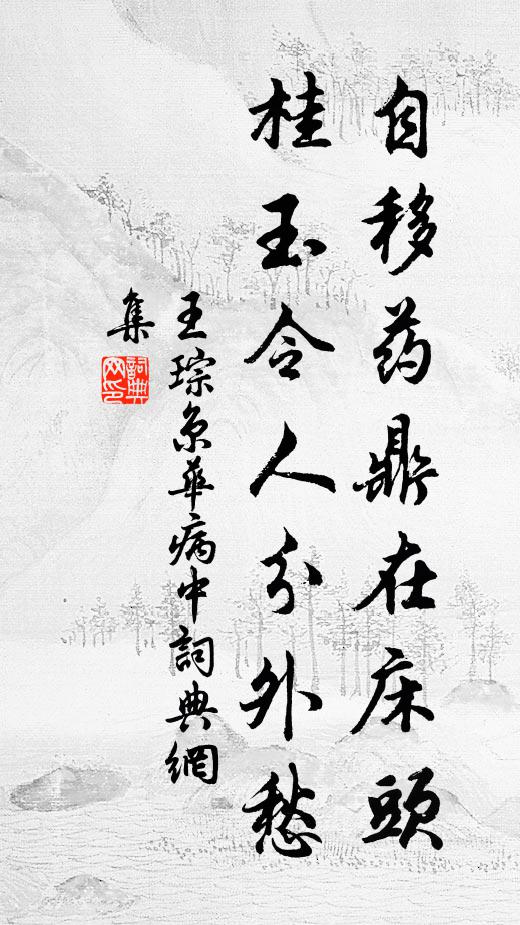 自移药鼎在床頭
桂玉令人分外愁
王琮京華病中詞典網
集
詞典网印